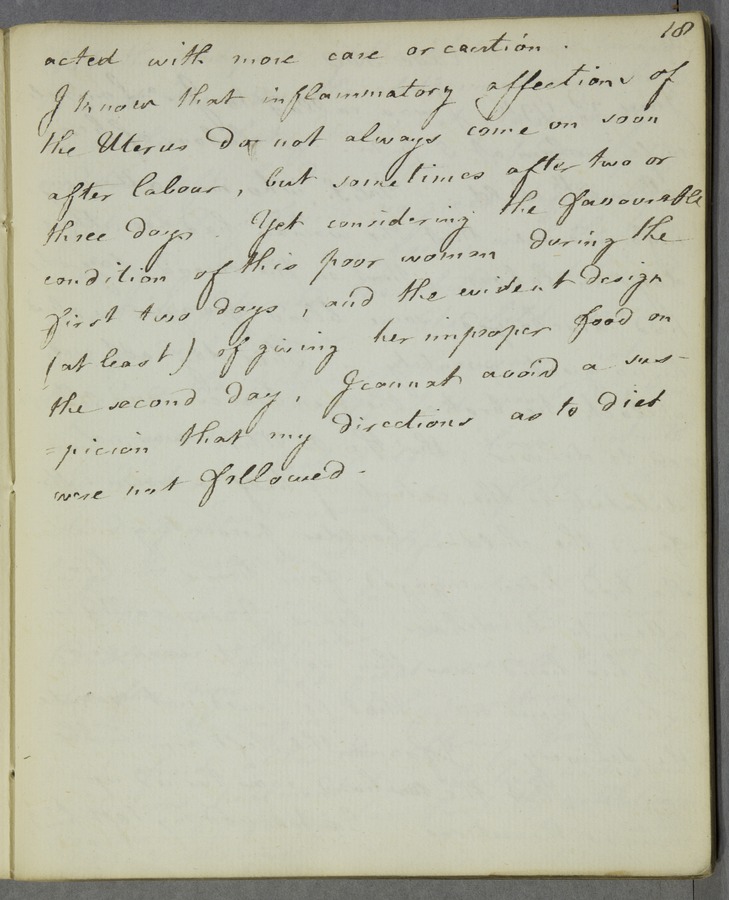 18
acted with more care or caution.
I know that inflammatory affections of
the Uterus do not always come on soon
after labour, but sometimes after two or
three days. Yet considering the favourable
condition of this poor woman during the
first two days, and the evident design
(at least) of giving her improper food on
the second day, I cannot avoid a sus-
=picion that my directions as to diet
were not followed.